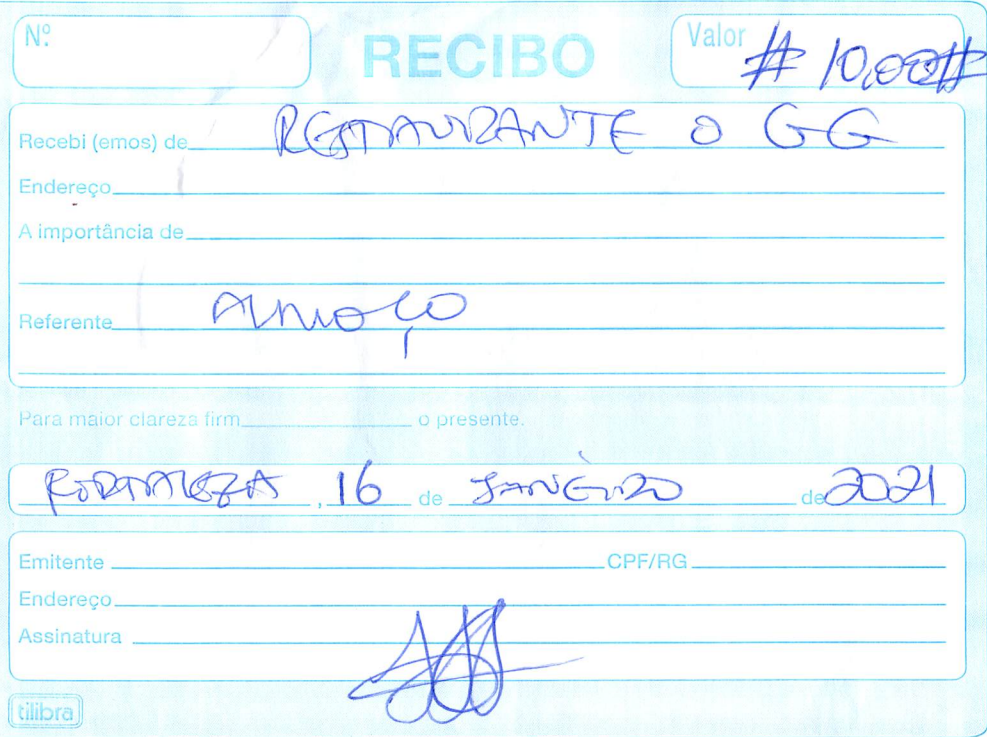 Nº
RECIBO
Valor # 10,00#
Recebi (emos) de RESTAURANTE O GG
Endereço
A importância de
Referente ALMOÇO
Para maior clareza firm o presente.
FORTALEZA , 16 de JANEIRO de 2021
Emitente CPF/RG
Endereço
Assinatura
tilibra